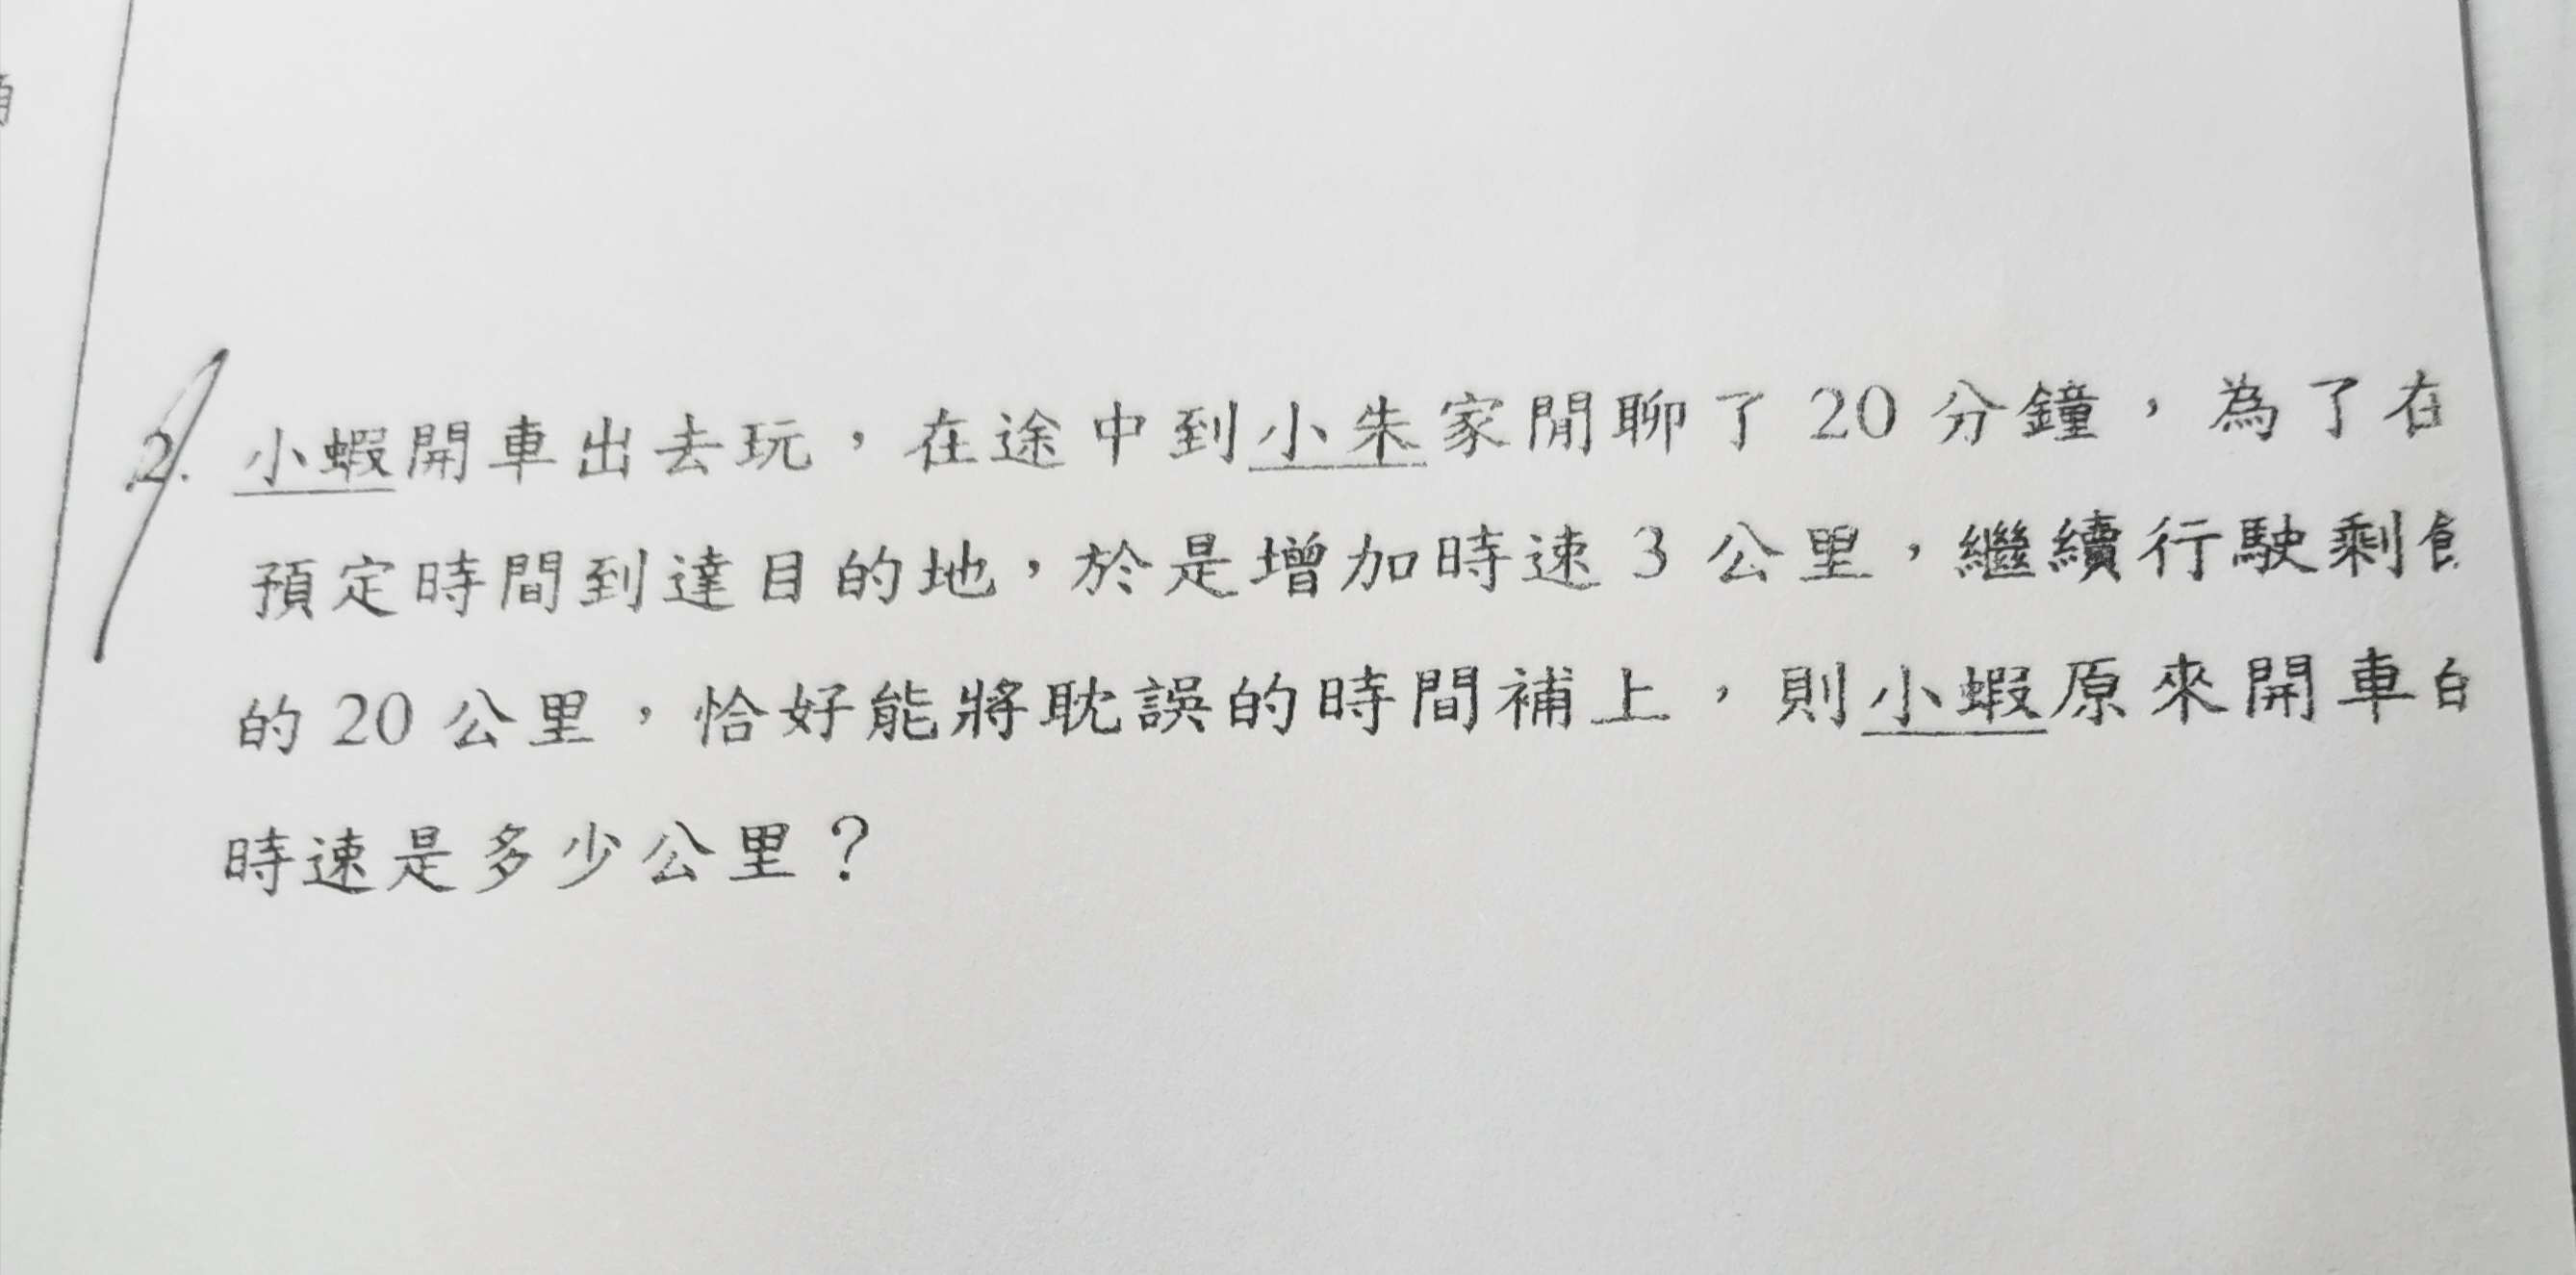 2. 小蝦開車出去玩，在途中到小朱家閒聊了 20 分鐘，為了在
預定時間到達目的地，於是增加時速 3 公里，繼續行駛剩
的 20 公里，恰好能將耽誤的時間補上，則小蝦原來開車
時速是多少公里？